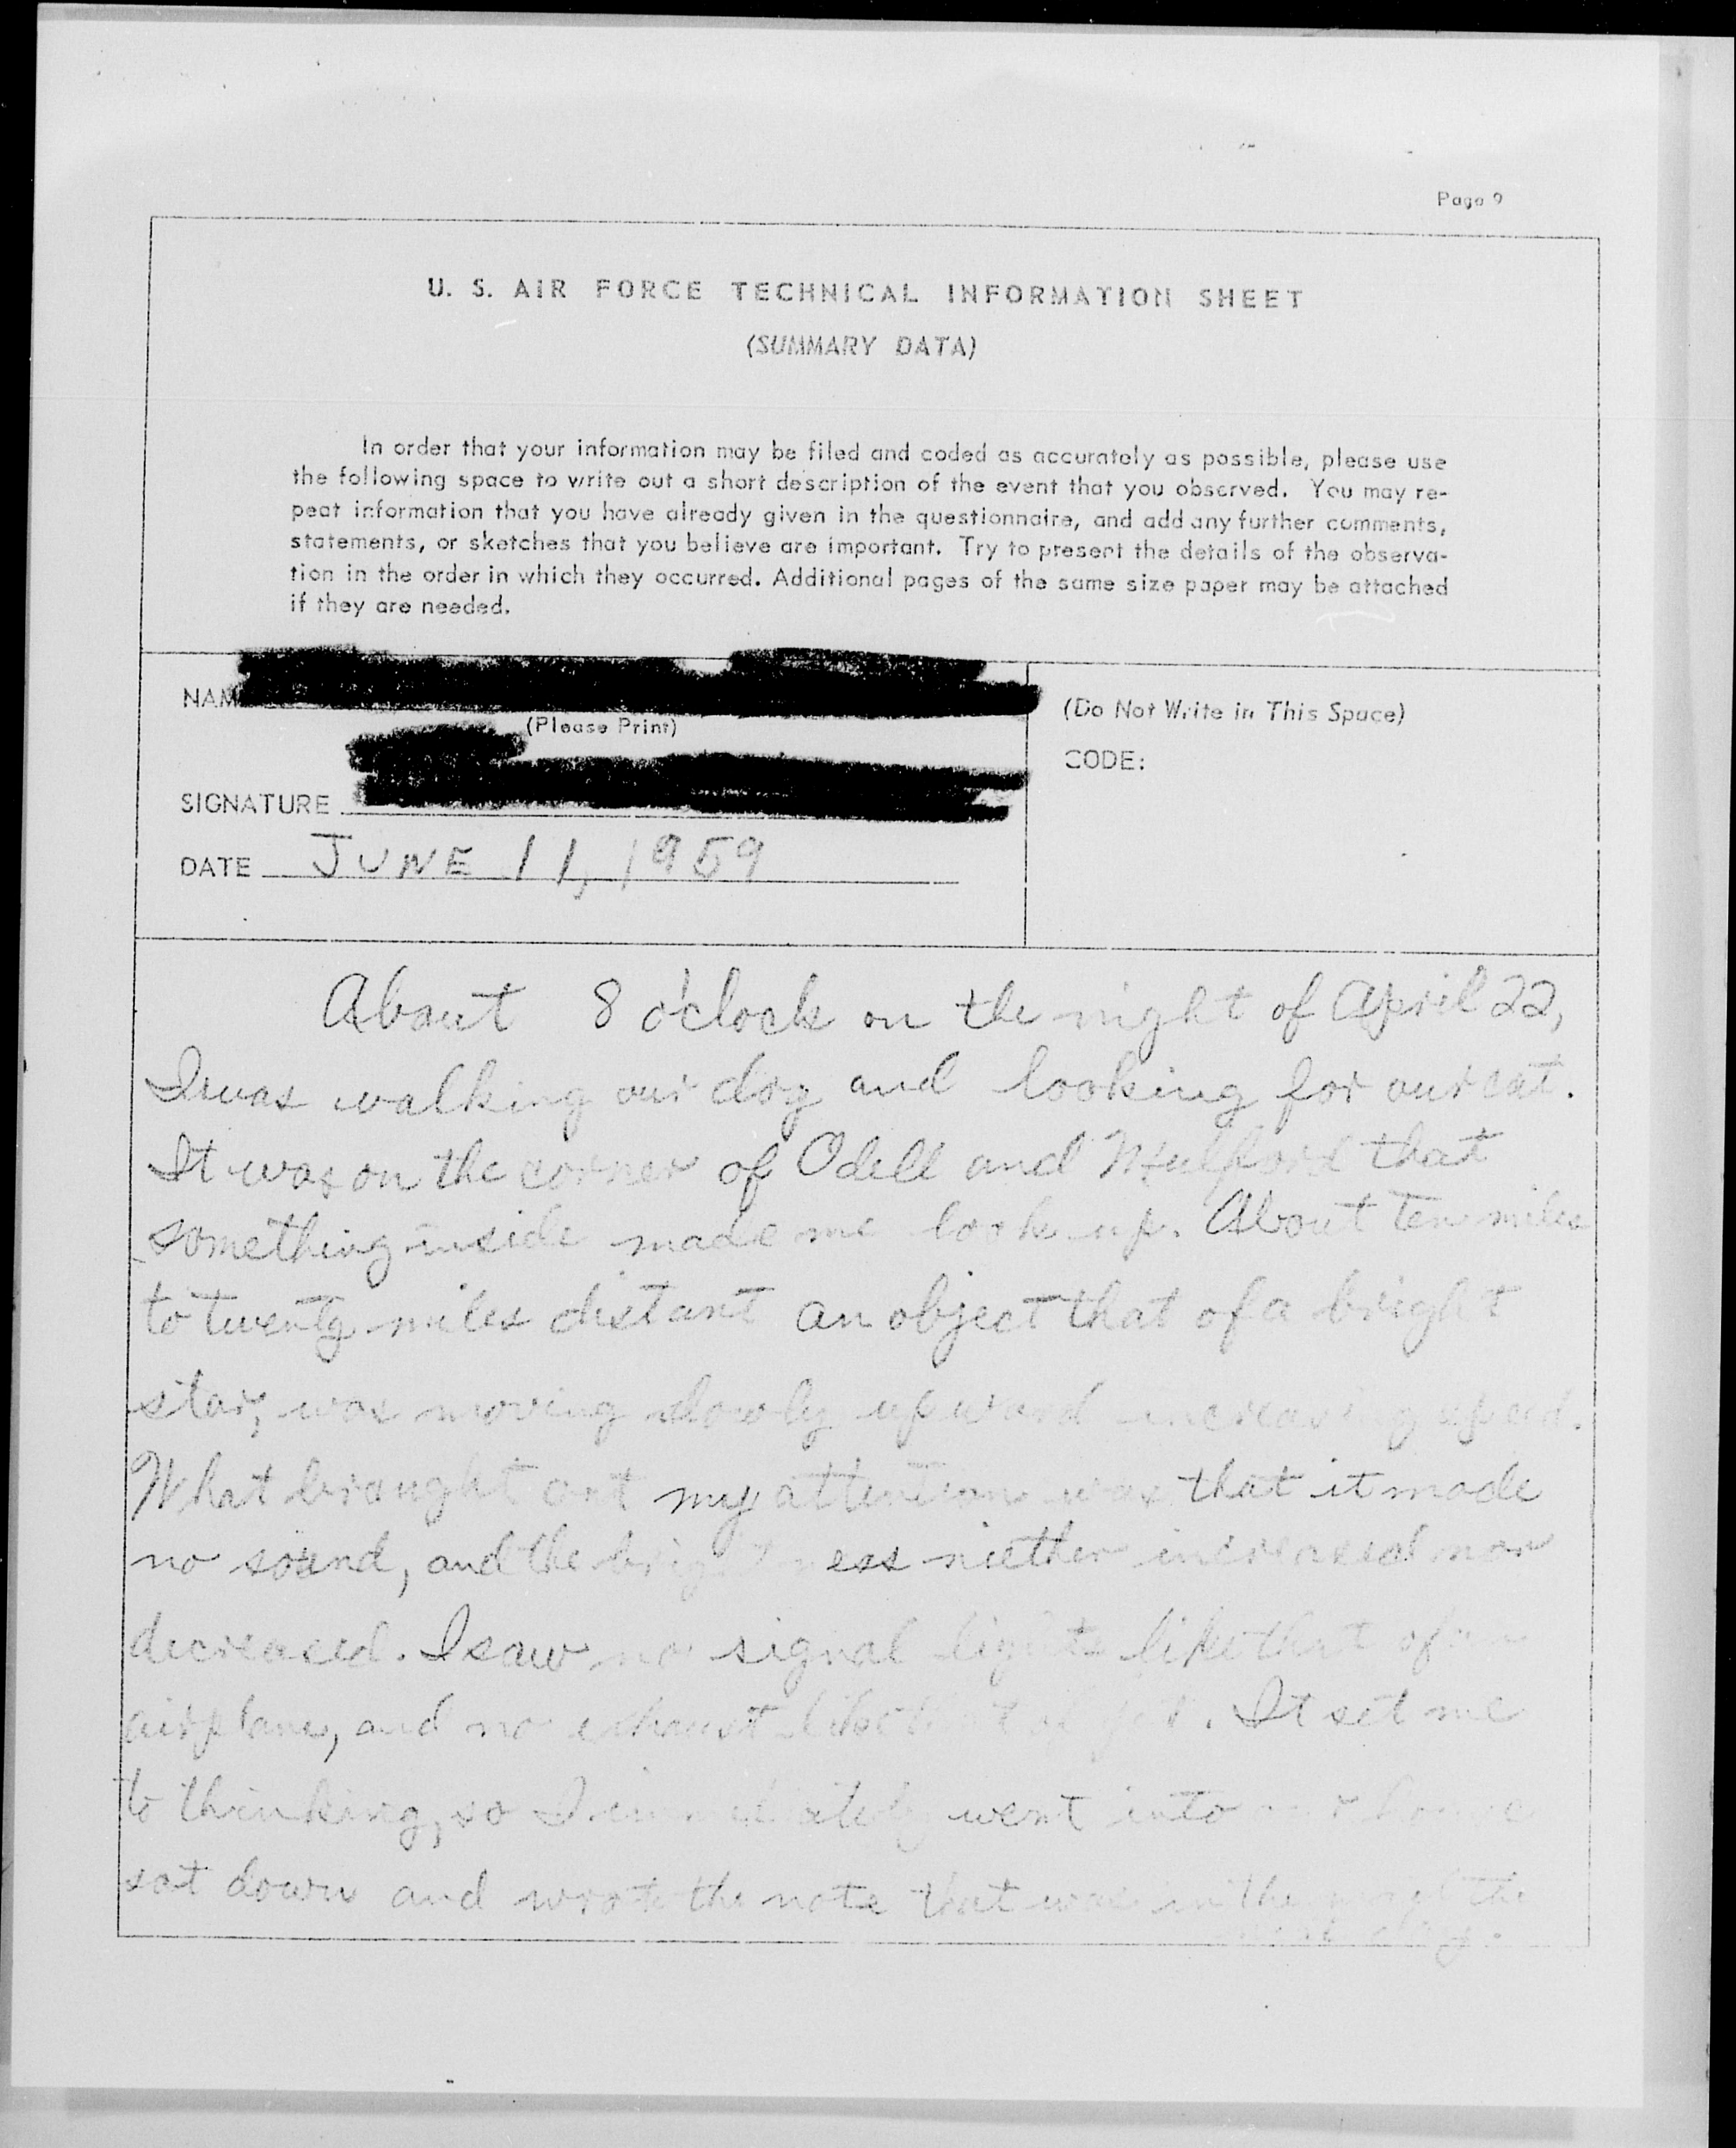 Page 9
U. S. AIR FORCE TECHNICAL INFORMATION SHEET
(SUMMARY DATA)
In order that your information may be filed and coded as accurately as possible, please use
the following space to write out a short description of the event that you observed. You may re-
peat information that you have already given in the questionnaire, and add any further comments,
statements, or sketches that you believe are important. Try to present the details of the observa-
tion in the order in which they occurred. Additional pages of the same size paper may be attached
if they are needed.
NAM
(Please Print)
SIGNATURE
DATE JUNE 11, 1959
(Do Not Write in This Space)
CODE:
About 8 o'clock on the night of April 22,
I was walking our dog and looking for our cat.
It was on the corner of Odell and Mulford that
something inside made me look up. About ten miles
to twenty miles distant an object that of a bright
star, was moving slowly upward increasing speed.
What brought out my attention was that it made
no sound, and the brightness niether increased nor
decreased. I saw no signal lights like that of an
airplane, and no exhaust like It set me
to thinking, so I immediately went into our house
sat down and wrote the note that was in the the
next day.